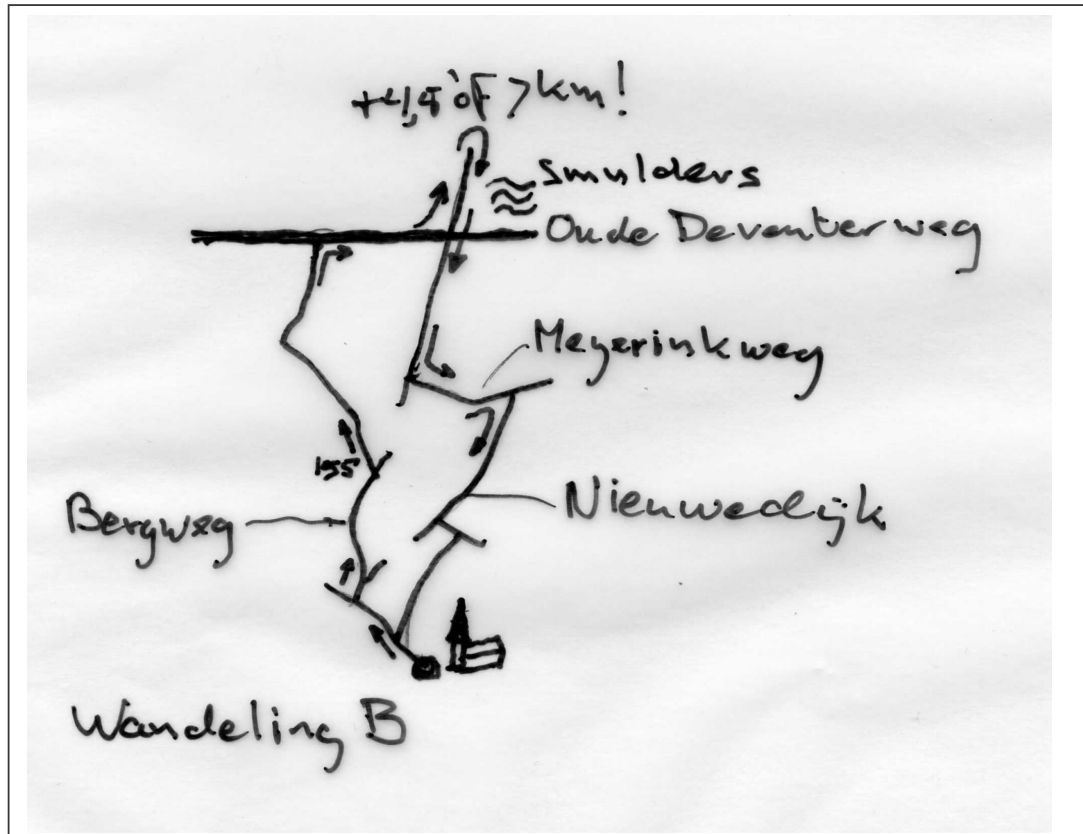 +4,5 òf 7 km!
Smulders
Oude Deventerweg
Meyerinkweg
155
Bergweg
Nieuwedijk
Wandeling B